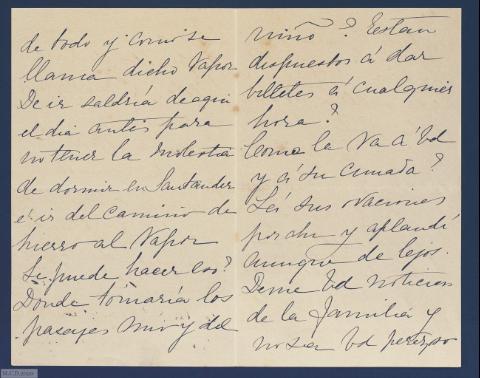 de todo y como se
llama dicho Vapor
De ir saldría de aquí
el dia antes para
no tener la molestia
de dormir en Santander
é ir del camino de
hierro al Vapor
Se puede hacer eso?
Donde tomaría los
pasajes mio y del
niño? Están
dispuestos á dar
billetes á cualquier
hora?
Como le va á Vd
y á su cuñada?
Leí sus ovaciones
y aplaudí
aunque de lejos.
Deme Vd noticias
de la familia y
no sea Vd perezoso